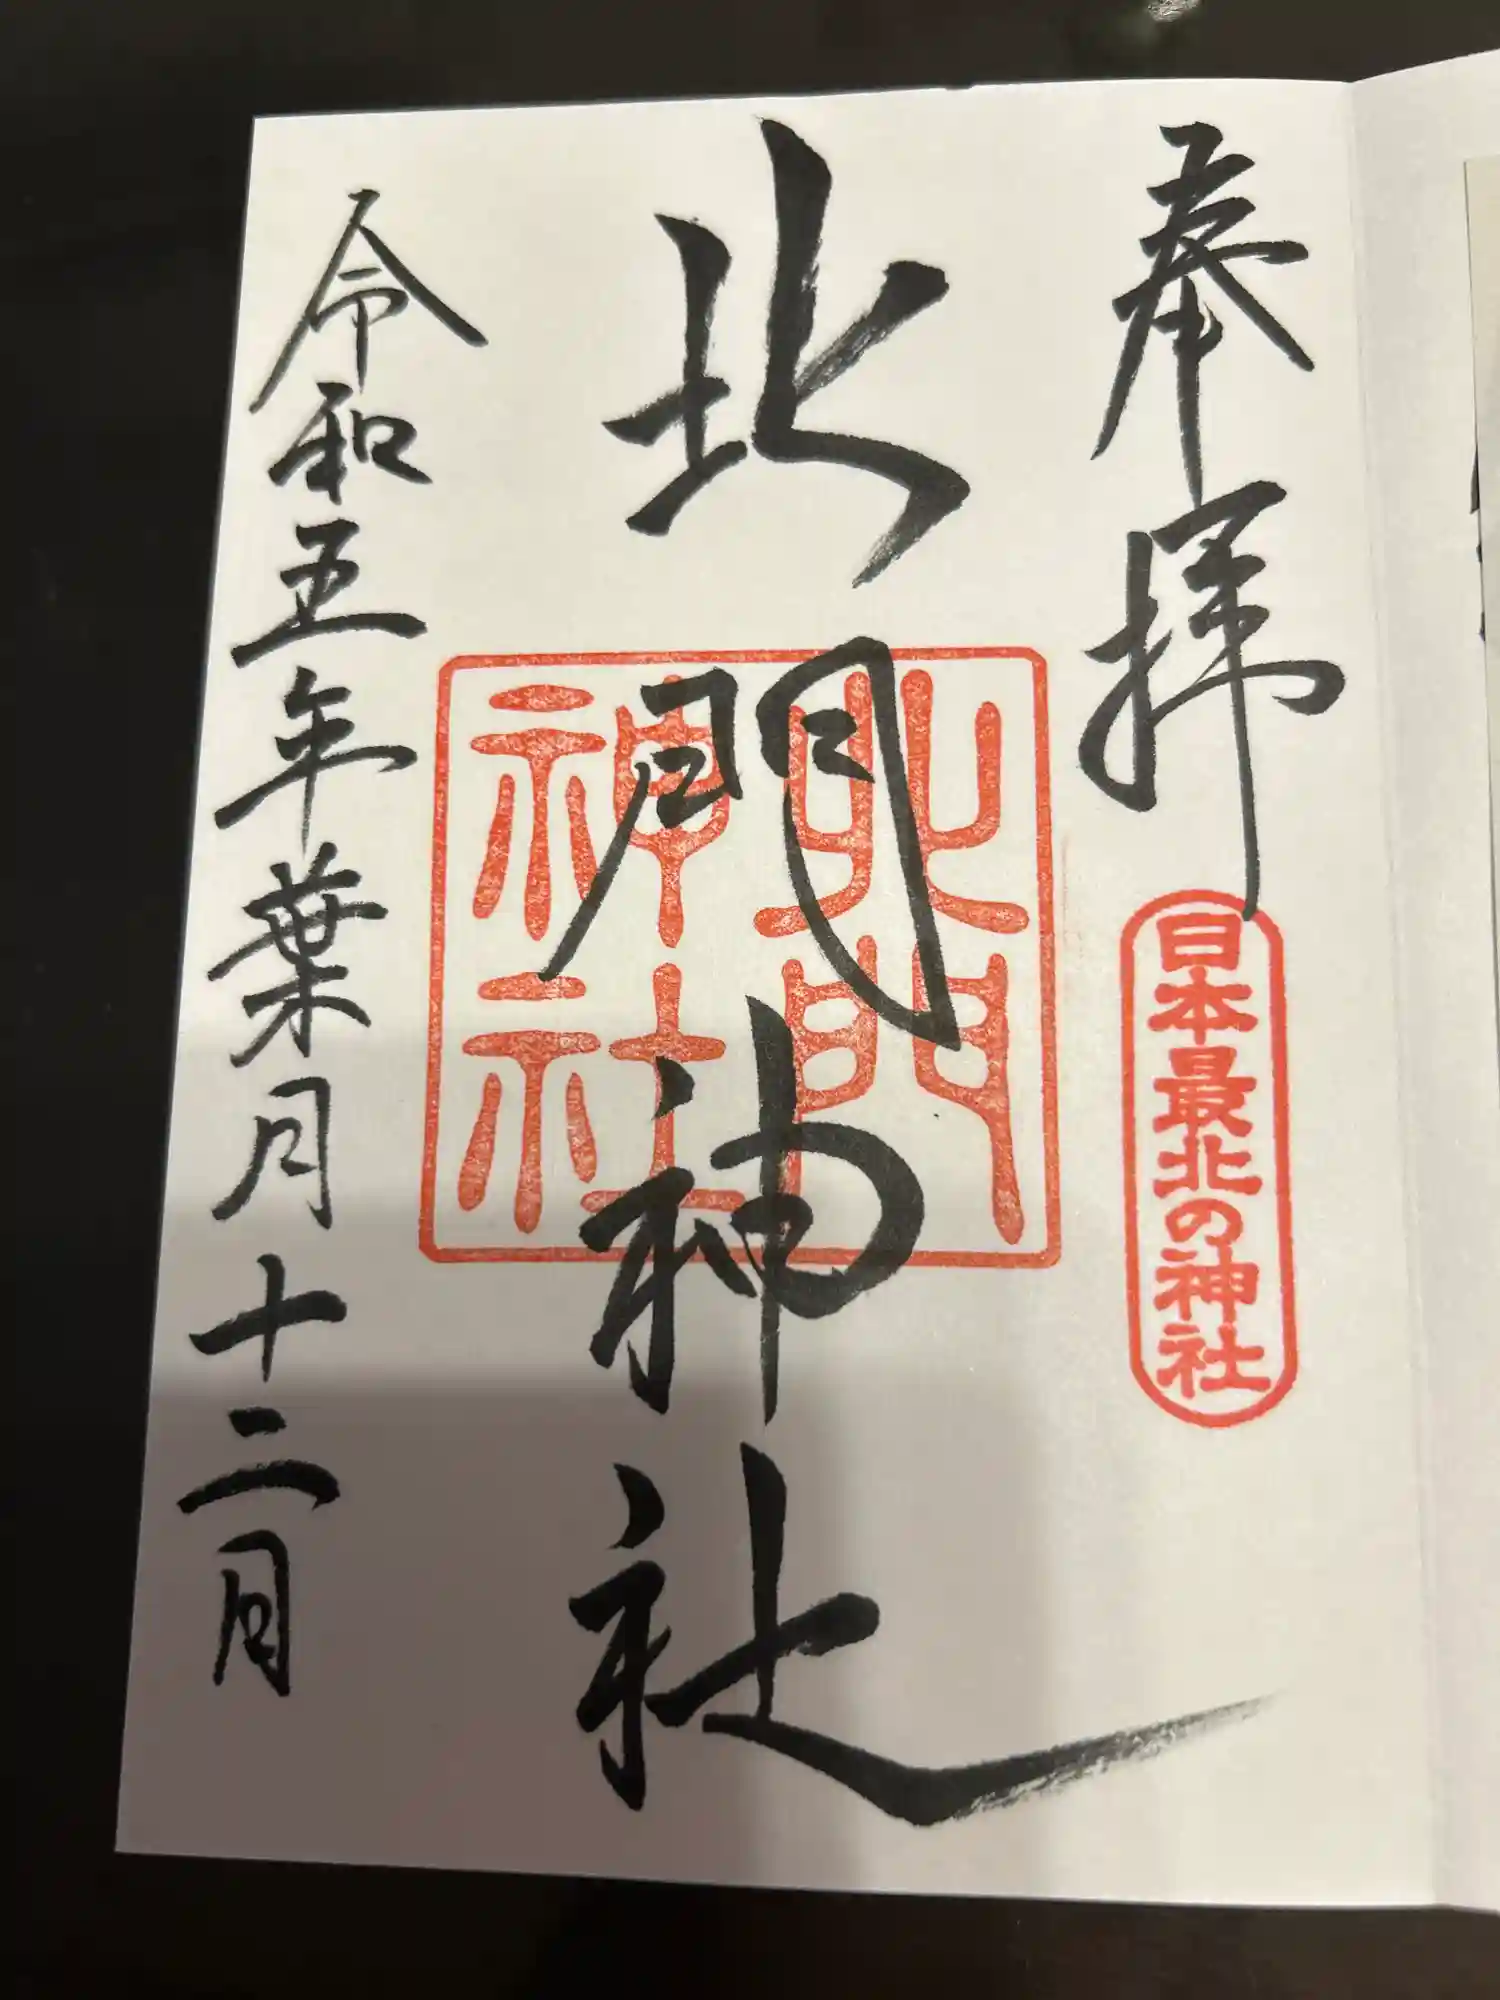 奉拝
日本最北の神社
北門神社
北門
神社
令和五年葉月十二日